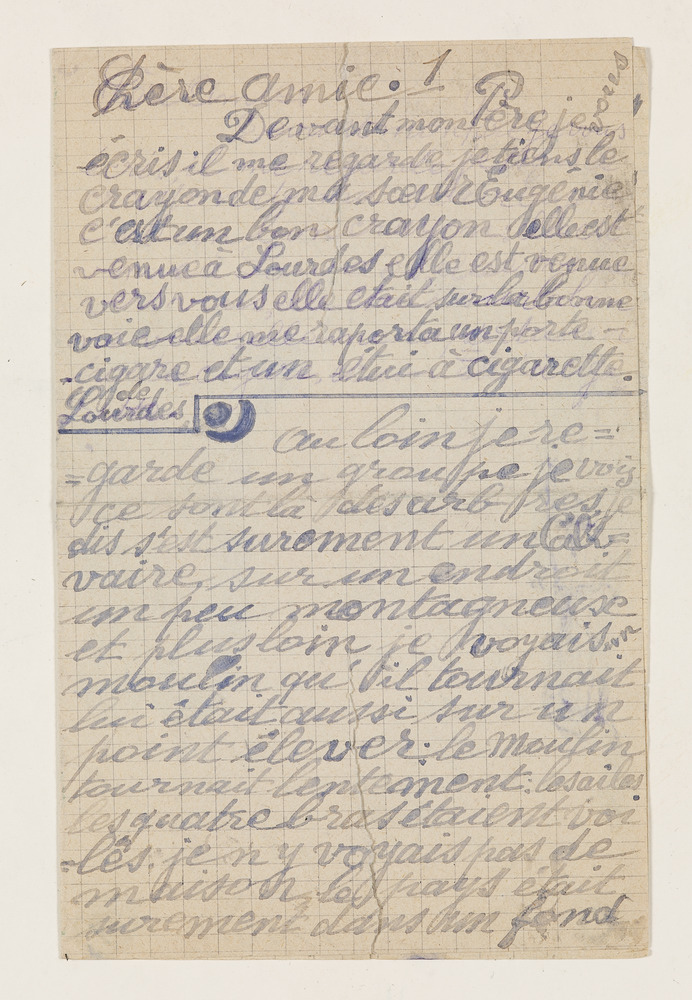 Chère amie. 1
Devant mon Père je vous
écris il me regarde je tiens le
crayon de ma sœur Eugénie
c'est un bon crayon elle est
venue à Lourdes elle est venue
vers vous elle etait sur la bonne
voie elle me raporta un porte-
cigare et un étui à cigarette.
de
Lourdes
au loin je re=
=garde un groupe je vois
ce sont là des arbres je
dis s'est surement un Cal=
vaire, sur un endroit
un peu montagneuse
et plus loin je voyais un
moulin qu'il tournait
lui était aussi sur un
point élever. le Moulin
tournait lentement. les ailes
les quatre bras étaient voi
=lés. je n'y voyais pas de
maison. le pays était
surement dans un fond